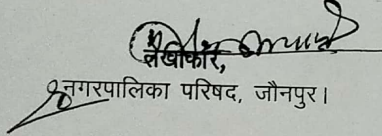 लेखाकार,
नगरपालिका परिषद, जौनपुर।